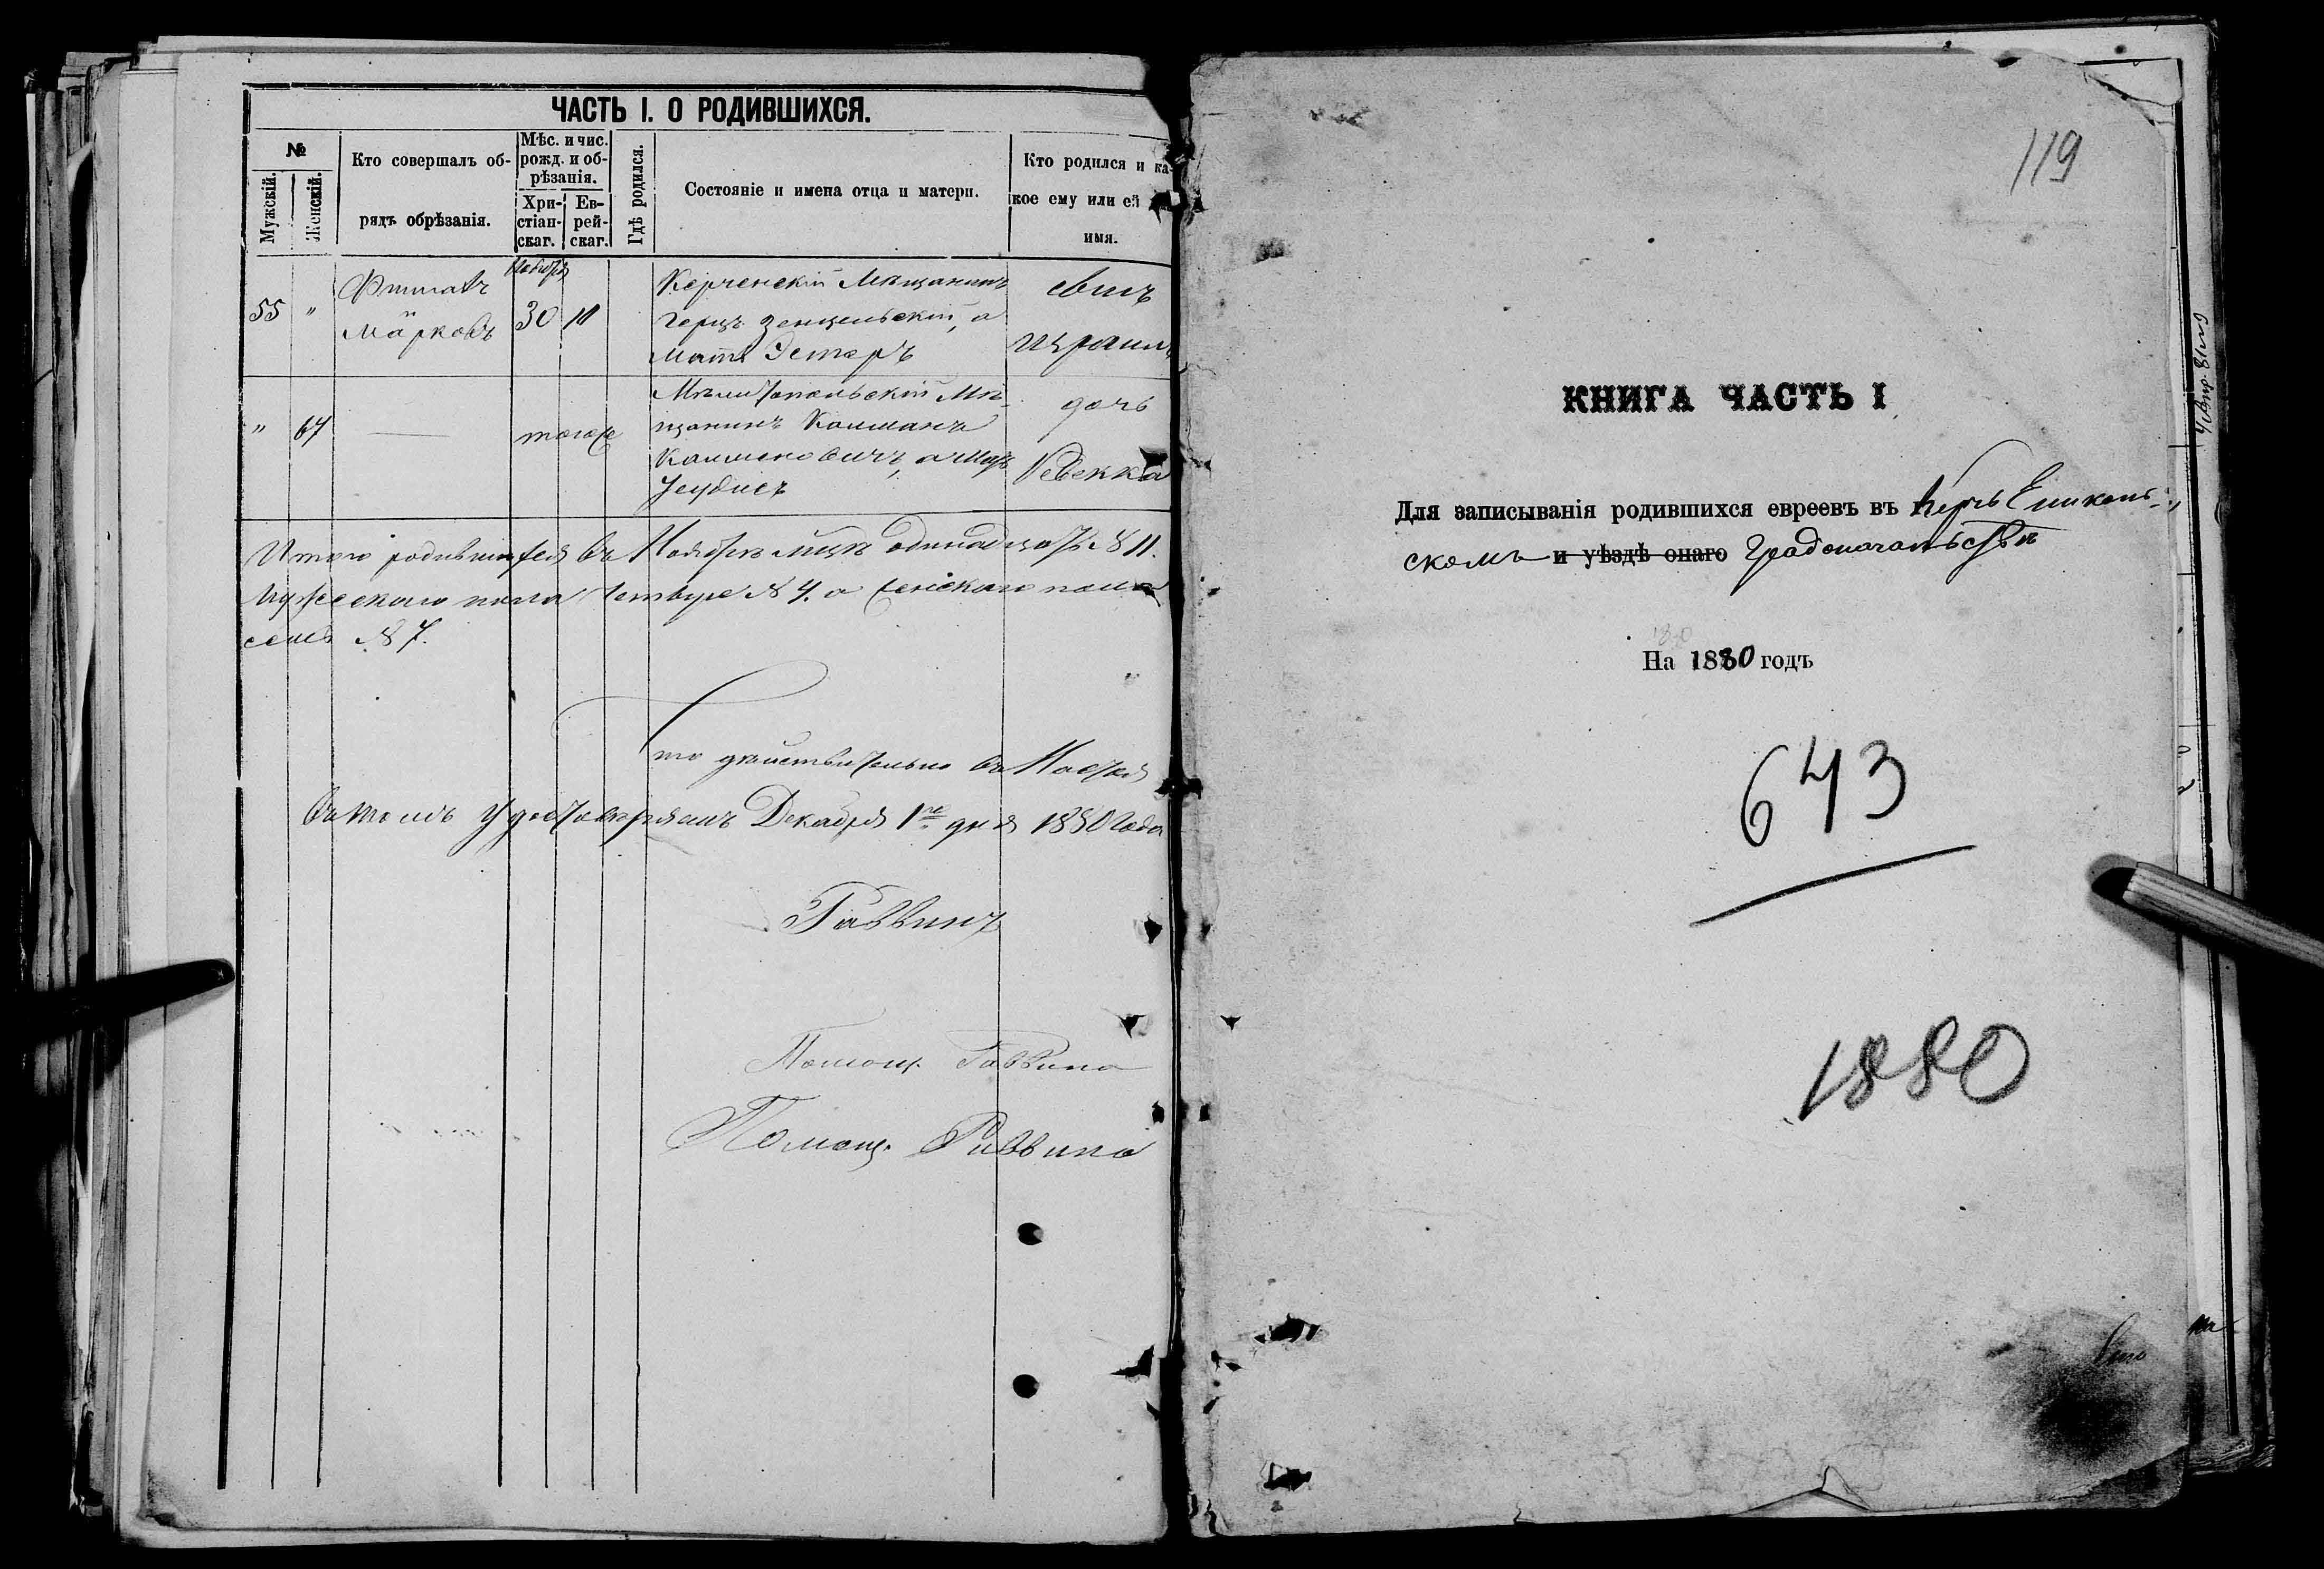 ЧАСТЬ I. О РОДИВШИХСЯ.
№
Мужскій.
Женскій.
Кто совершалъ об-
рядъ обрѣзанія.
Мѣс. и чис.
рожд. и об-
рѣзанія.
Хри-
стіан-
скаг.
Ев-
рей-
скаг.
Гдѣ родился.
Состояніе и имена отца и матери.
Кто родился и ка-
кое ему или ей
имя.
Ноября
55 "
Марковъ
30
Керченскій Мѣщанинъ
Герцъ Зенцельскій, а
мать Эстеръ
сынъ
Израиль
" 67
тогоже
Мелитопольскій Мѣ-
щанинъ Калманъ
Калмановичъ, а мать
дочь
Ревекка
Итого родившихся въ Ноябрѣ мцѣ одинадцать № 11.
Мужескаго пола четыре № 4. а женскаго пола
семь № 7.
Что дѣйствительно въ Ноябрѣ
въ томъ удостовѣряемъ Декабря 1го дня 1880 года
Раввинъ
Помощ. Раввина
Помощ. Раввина
119
КНИГА ЧАСТЬ I
Для записыванія родившихся евреевъ въ Керчь Еникаль-
скомъ и уѣздѣ онаго Градоначальствѣ
На 1880 годъ
643
1880